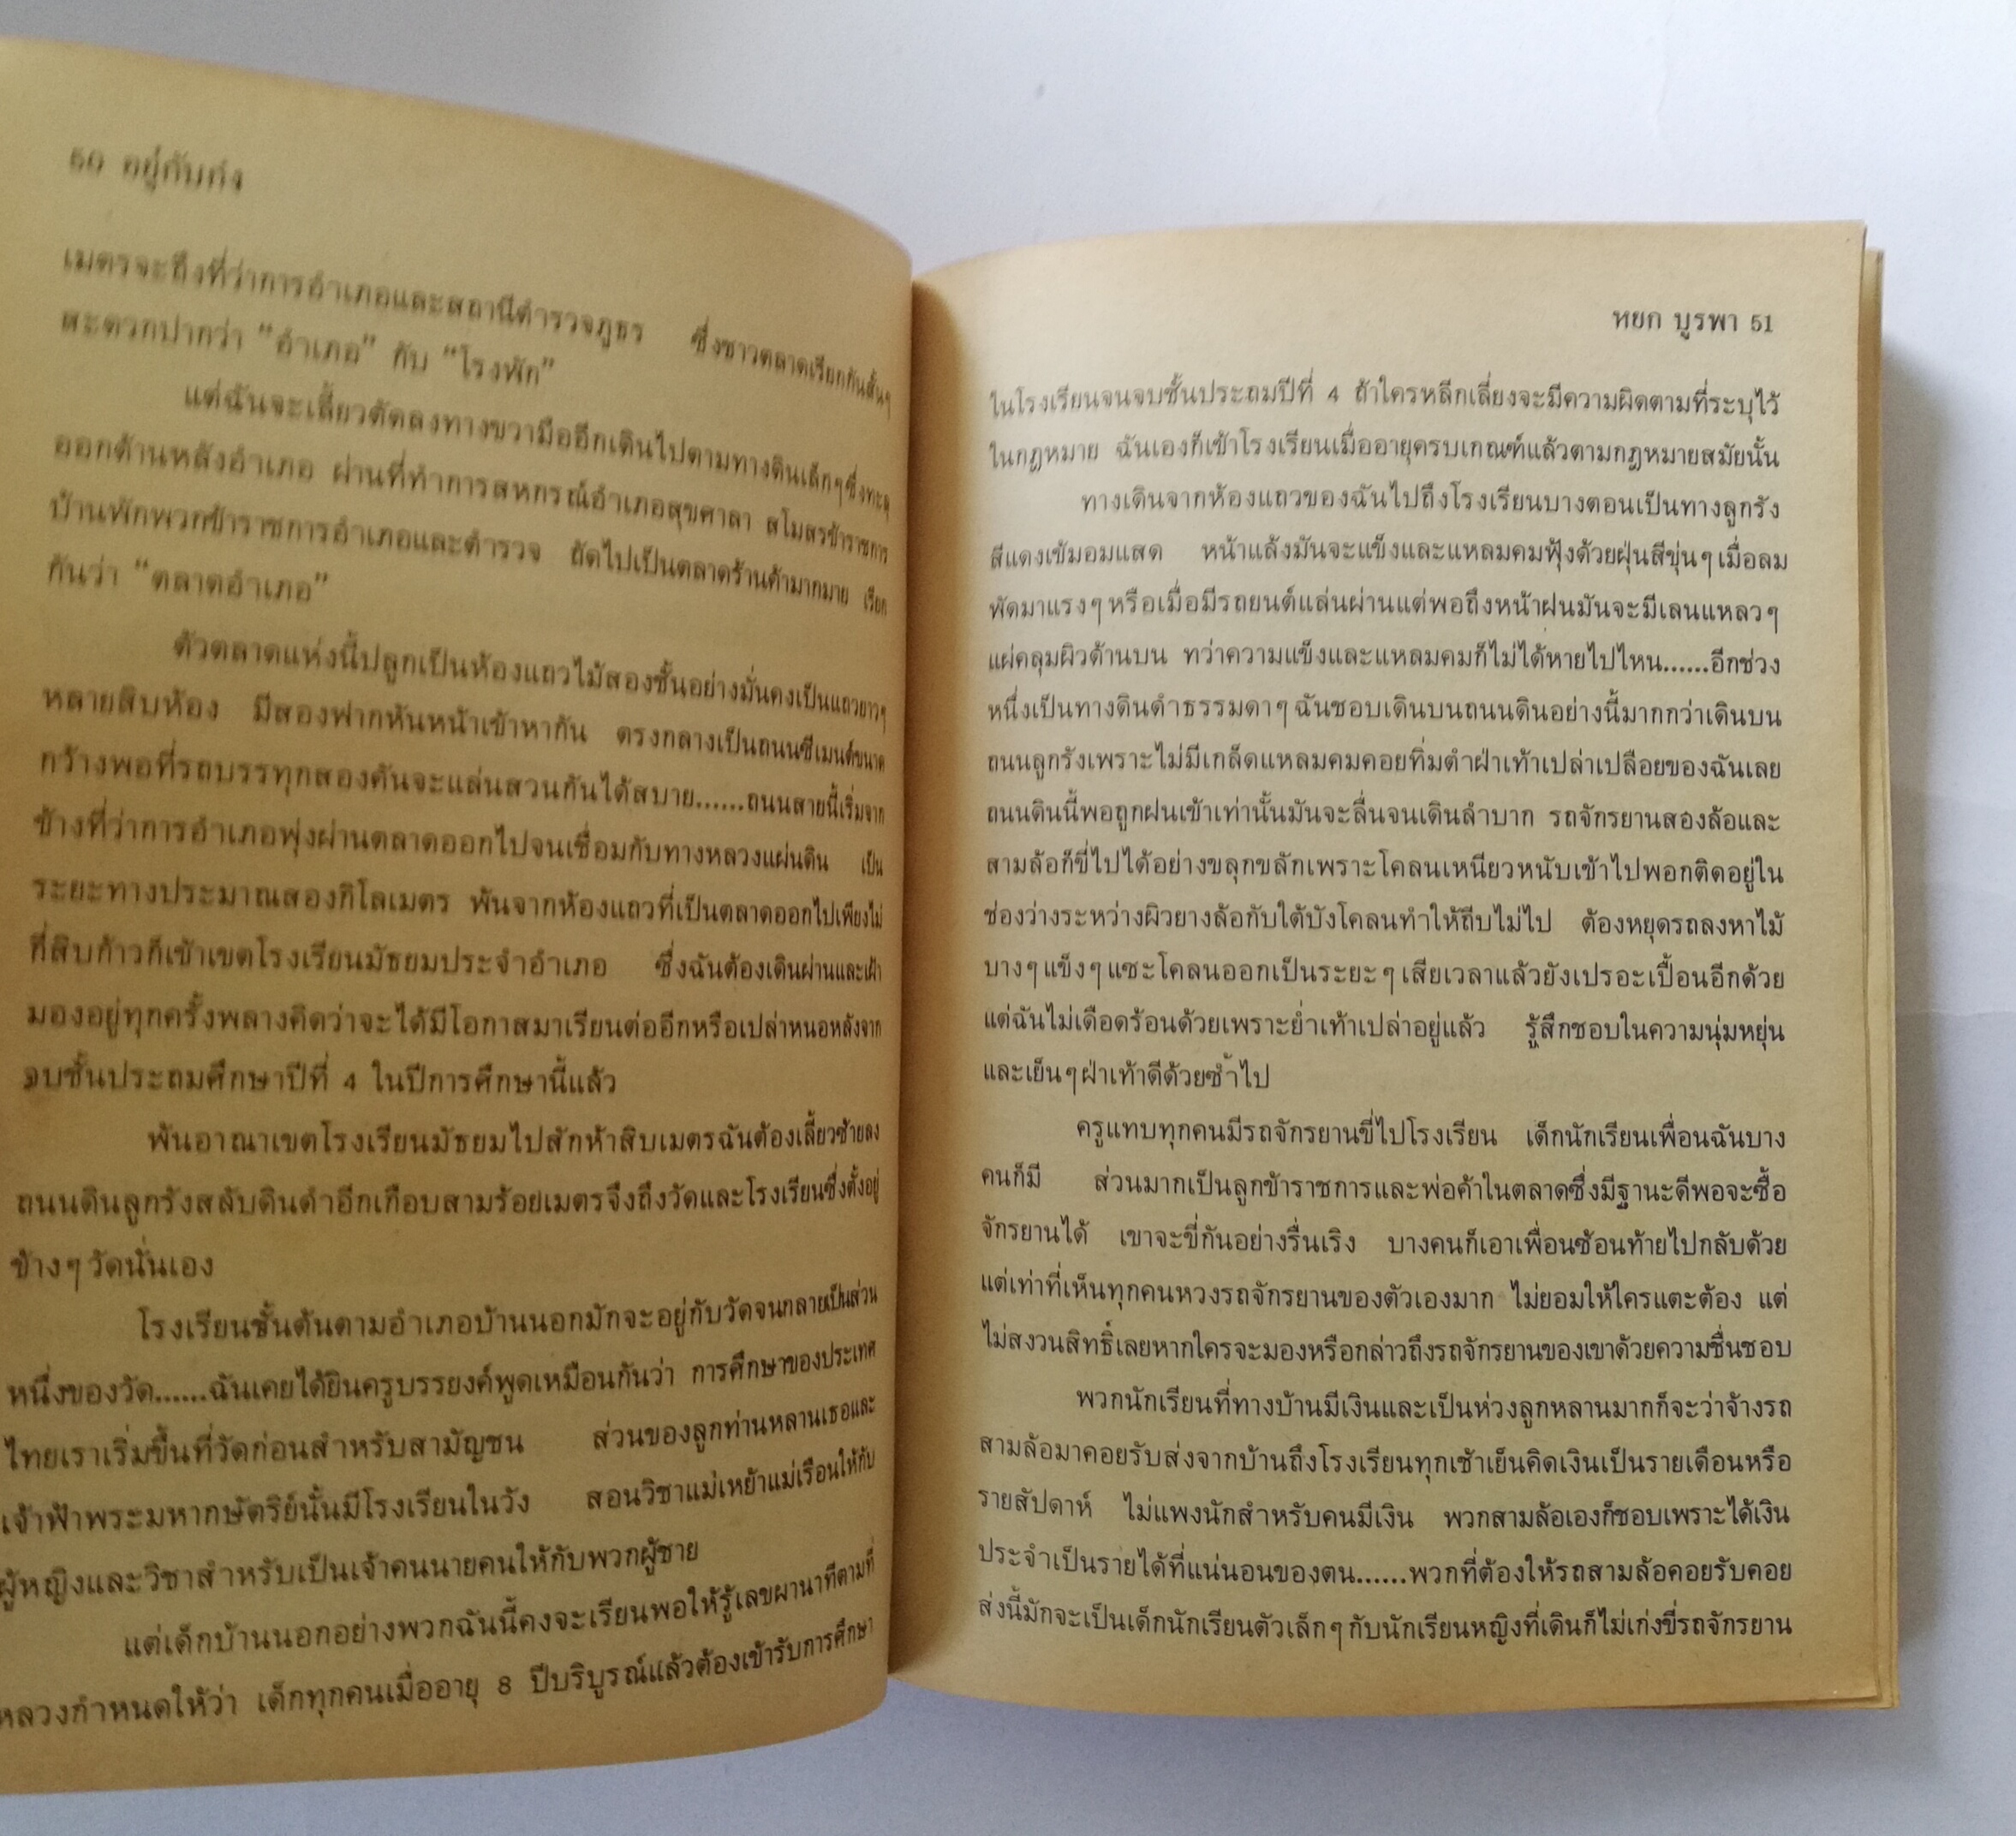 50 อยู่กับก๋ง
เมตรจะถึงที่ว่าการอำเภอและสถานีตำรวจภูธร ซึ่งชาวตลาดเรียกกันสั้นๆ
สะดวกปากว่า “อำเภอ” กับ “โรงพัก”
แต่ฉันจะเลี้ยวตัดลงทางขวามืออีกเดินไปตามทางดินเล็กๆซึ่งทะลุ
ออกด้านหลังอำเภอ ผ่านที่ทำการสหกรณ์อำเภอสุขศาลา สโมสรข้าราชการ
บ้านพักพวกข้าราชการอำเภอและตำรวจ ถัดไปเป็นตลาดร้านค้ามากมาย เรียก
กันว่า “ตลาดอำเภอ”
ตัวตลาดแห่งนี้ปลูกเป็นห้องแถวไม้สองชั้นอย่างมั่นคงเป็นแถวยาวๆ
หลายสิบห้อง มีสองฟากหันหน้าเข้าหากัน ตรงกลางเป็นถนนซีเมนต์ขนาด
กว้างพอที่รถบรรทุกสองคันจะแล่นสวนกันได้สบาย......ถนนสายนี้เริ่มจาก
ข้างที่ว่าการอำเภอพุ่งผ่านตลาดออกไปจนเชื่อมกับทางหลวงแผ่นดิน เป็น
ระยะทางประมาณสองกิโลเมตร พ้นจากห้องแถวที่เป็นตลาดออกไปเพียงไม่
กี่สิบก้าวก็เข้าเขตโรงเรียนมัธยมประจำอำเภอ ซึ่งฉันต้องเดินผ่านและเฝ้า
มองอยู่ทุกครั้งพลางคิดว่าจะได้มีโอกาสมาเรียนต่ออีกหรือเปล่าหนอหลังจาก
จบชั้นประถมศึกษาปีที่ 4 ในปีการศึกษานี้แล้ว
พ้นอาณาเขตโรงเรียนมัธยมไปสักห้าสิบเมตรฉันต้องเลี้ยวซ้ายลง
ถนนดินลูกรังสลับดินดำอีกเกือบสามร้อยเมตรจึงถึงวัดและโรงเรียนซึ่งตั้งอยู่
ข้างๆวัดนั่นเอง
โรงเรียนชั้นต้นตามอำเภอบ้านนอกมักจะอยู่กับวัดจนกลายเป็นส่วน
หนึ่งของวัด......ฉันเคยได้ยินครูบรรยงค์พูดเหมือนกันว่า การศึกษาของประเทศ
ไทยเราเริ่มขึ้นที่วัดก่อนสำหรับสามัญชน ส่วนของลูกท่านหลานเธอและ
เจ้าฟ้าพระมหากษัตริย์นั้นมีโรงเรียนในวัง สอนวิชาแม่เหย้าแม่เรือนให้กับ
ผู้หญิงและวิชาสำหรับเป็นเจ้าคนนายคนให้กับพวกผู้ชาย
แต่เด็กบ้านนอกอย่างพวกฉันนี้คงจะเรียนพอให้รู้เลขผานาทีตามที่
หลวงกำหนดให้ว่า เด็กทุกคนเมื่ออายุ 8 ปีบริบูรณ์แล้วต้องเข้ารับการศึกษา
หยก บูรพา 51
ในโรงเรียนจนจบชั้นประถมปีที่ 4 ถ้าใครหลีกเลี่ยงจะมีความผิดตามที่ระบุไว้
ในกฎหมาย ฉันเองก็เข้าโรงเรียนเมื่ออายุครบเกณฑ์แล้วตามกฎหมายสมัยนั้น
ทางเดินจากห้องแถวของฉันไปถึงโรงเรียนบางตอนเป็นทางลูกรัง
สีแดงเข้มอมแสด หน้าแล้งมันจะแข็งและแหลมคมฟุ้งด้วยฝุ่นสีขุ่นๆเมื่อลม
พัดมาแรงๆหรือเมื่อมีรถยนต์แล่นผ่านแต่พอถึงหน้าฝนมันจะมีเลนแหลวๆ
แผ่คลุมผิวด้านบน ทว่าความแข็งและแหลมคมก็ไม่ได้หายไปไหน......อีกช่วง
หนึ่งเป็นทางดินดำธรรมดาๆฉันชอบเดินบนถนนดินอย่างนี้มากกว่าเดินบน
ถนนลูกรังเพราะไม่มีเกล็ดแหลมคมคอยทิ่มตำฝ่าเท้าเปล่าเปลือยของฉันเลย
ถนนดินนี้พอถูกฝนเข้าเท่านั้นมันจะลื่นจนเดินลำบาก รถจักรยานสองล้อและ
สามล้อก็ขี่ไปได้อย่างขลุกขลักเพราะโคลนเหนียวหนับเข้าไปพอกติดอยู่ใน
ช่องว่างระหว่างผิวยางล้อกับใต้บังโคลนทำให้ถีบไม่ไป ต้องหยุดรถลงหาไม้
บางๆแข็งๆแซะโคลนออกเป็นระยะๆเสียเวลาแล้วยังเปรอะเปื้อนอีกด้วย
แต่ฉันไม่เดือดร้อนด้วยเพราะย่ำเท้าเปล่าอยู่แล้ว รู้สึกชอบในความนุ่มหยุ่น
และเย็นๆฝ่าเท้าดีด้วยซ้ำไป
ครูแทบทุกคนมีรถจักรยานขี่ไปโรงเรียน เด็กนักเรียนเพื่อนฉันบาง
คนก็มี ส่วนมากเป็นลูกข้าราชการและพ่อค้าในตลาดซึ่งมีฐานะดีพอจะซื้อ
จักรยานได้ เขาจะขี่กันอย่างรื่นเริง บางคนก็เอาเพื่อนซ้อนท้ายไปกลับด้วย
แต่เท่าที่เห็นทุกคนหวงรถจักรยานของตัวเองมาก ไม่ยอมให้ใครแตะต้อง แต่
ไม่สงวนสิทธิ์เลยหากใครจะมองหรือกล่าวถึงรถจักรยานของเขาด้วยความชื่นชอบ
พวกนักเรียนที่ทางบ้านมีเงินและเป็นห่วงลูกหลานมากก็จะว่าจ้างรถ
สามล้อมาคอยรับส่งจากบ้านถึงโรงเรียนทุกเช้าเย็นคิดเงินเป็นรายเดือนหรือ
รายสัปดาห์ ไม่แพงนักสำหรับคนมีเงิน พวกสามล้อเองก็ชอบเพราะได้เงิน
ประจำเป็นรายได้ที่แน่นอนของตน......พวกที่ต้องให้รถสามล้อคอยรับคอย
ส่งนี้มักจะเป็นเด็กนักเรียนตัวเล็กๆกับนักเรียนหญิงที่เดินก็ไม่เก่งขี่รถจักรยาน